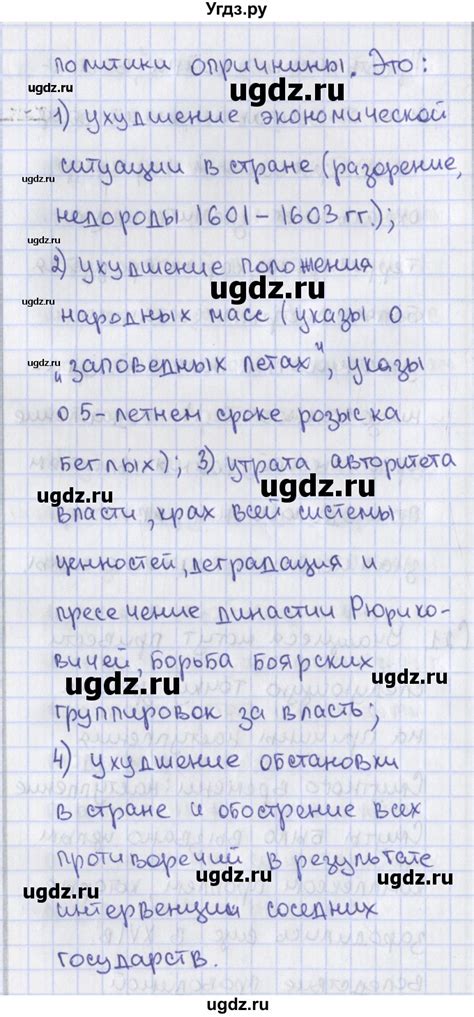 Угдз.ру
политики опричнины. Это:
ugdz.ru
ugdz.ru
1) ухудшение экономической
ситуации в стране (разорение,
ugdz.ru
ugdz.ru
недороды 1601-1603 гг.);
ugdz.ru
2) ухудшение положения
ugdz.ru
народных масс (указы о
ugdz.ru
"заповедных летах", указы
о 5-летнем сроке розыска
беглых); 3) утрата авторитета
ugdz.ru
ugdz.ru
власти, крах всей системы
ценностей, деградация и
ugdz.ru
пресечение династии Рюрико-
вичей, борьба боярских
ugdz.ru
ugdz.ru
группировок за власть;
4) ухудшение обстановки
ugdz.ru
в стране и обострение всех
противоречий в результате
ugdz.ru
ugdz.ru
интервенции соседних
ugdz.ru
государств.
ugdz.ru